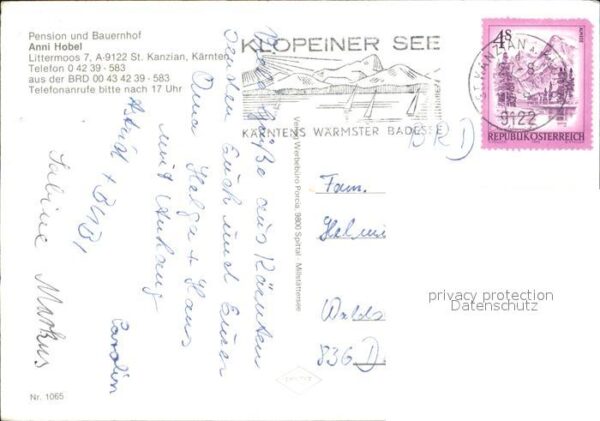 Pension und Bauernhof
Anni Hobel
Littermoos 7, A-9122 St. Kanzian, Kärnten
Telefon 0 42 39 - 583
aus der BRD 00 43 42 39 - 583
Telefonanrufe bitte nach 17 Uhr
KLOPEINER SEE
KÄRNTENS WÄRMSTER BADESEE
ST. KANZIAN
9122
4S
REPUBLIK ÖSTERREICH
BRD
Viele Grüße aus Kärnten
senden Euch und Eurer
Oma Helga + Hans
mit Anhang
Astrid +
Sabine Markus
Carolin
Verlag Werbebüro Porcia, 9800 Spittal - Millstättersee
Fam.
Helmi
Walds
836 D
privacy protection
Datenschutz
Nr. 1065